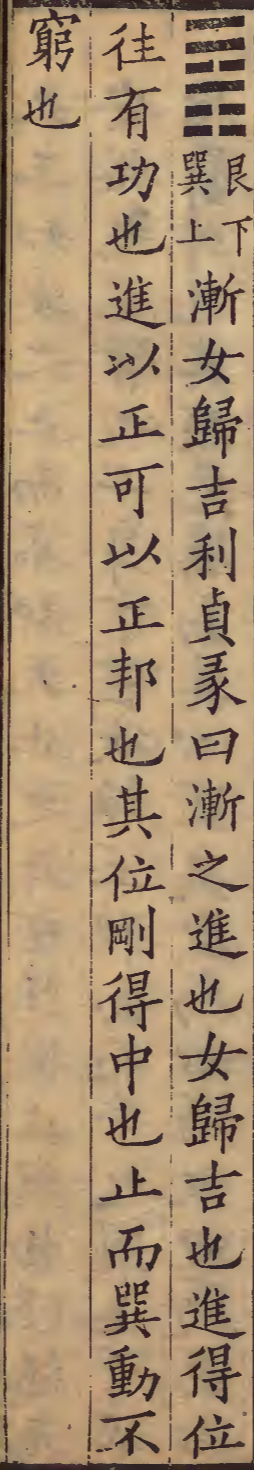 ䷴艮下巽上漸女歸吉利貞彖曰漸之進也女歸吉也進得位
往有功也進以正可以正邦也其位剛得中也止而巽動不
窮也